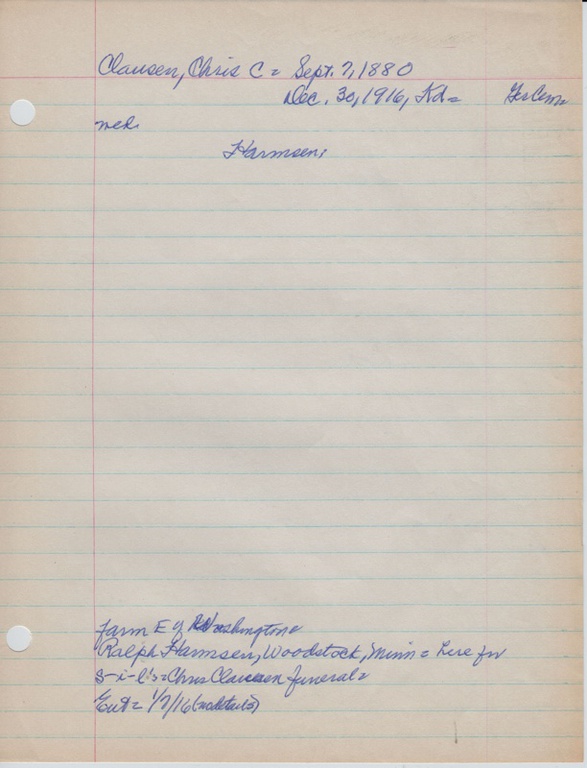 Clausen, Chris C = Sept. 7, 1880
Dec. 30, 1916, Kd = Ger Cem =
med.
Harmsen,
farm E of Washington =
Ralph Harmsen, Woodstock, Minn = here for
s-i-l's = Chris Clausen funeral =
1/2/16 (no details)